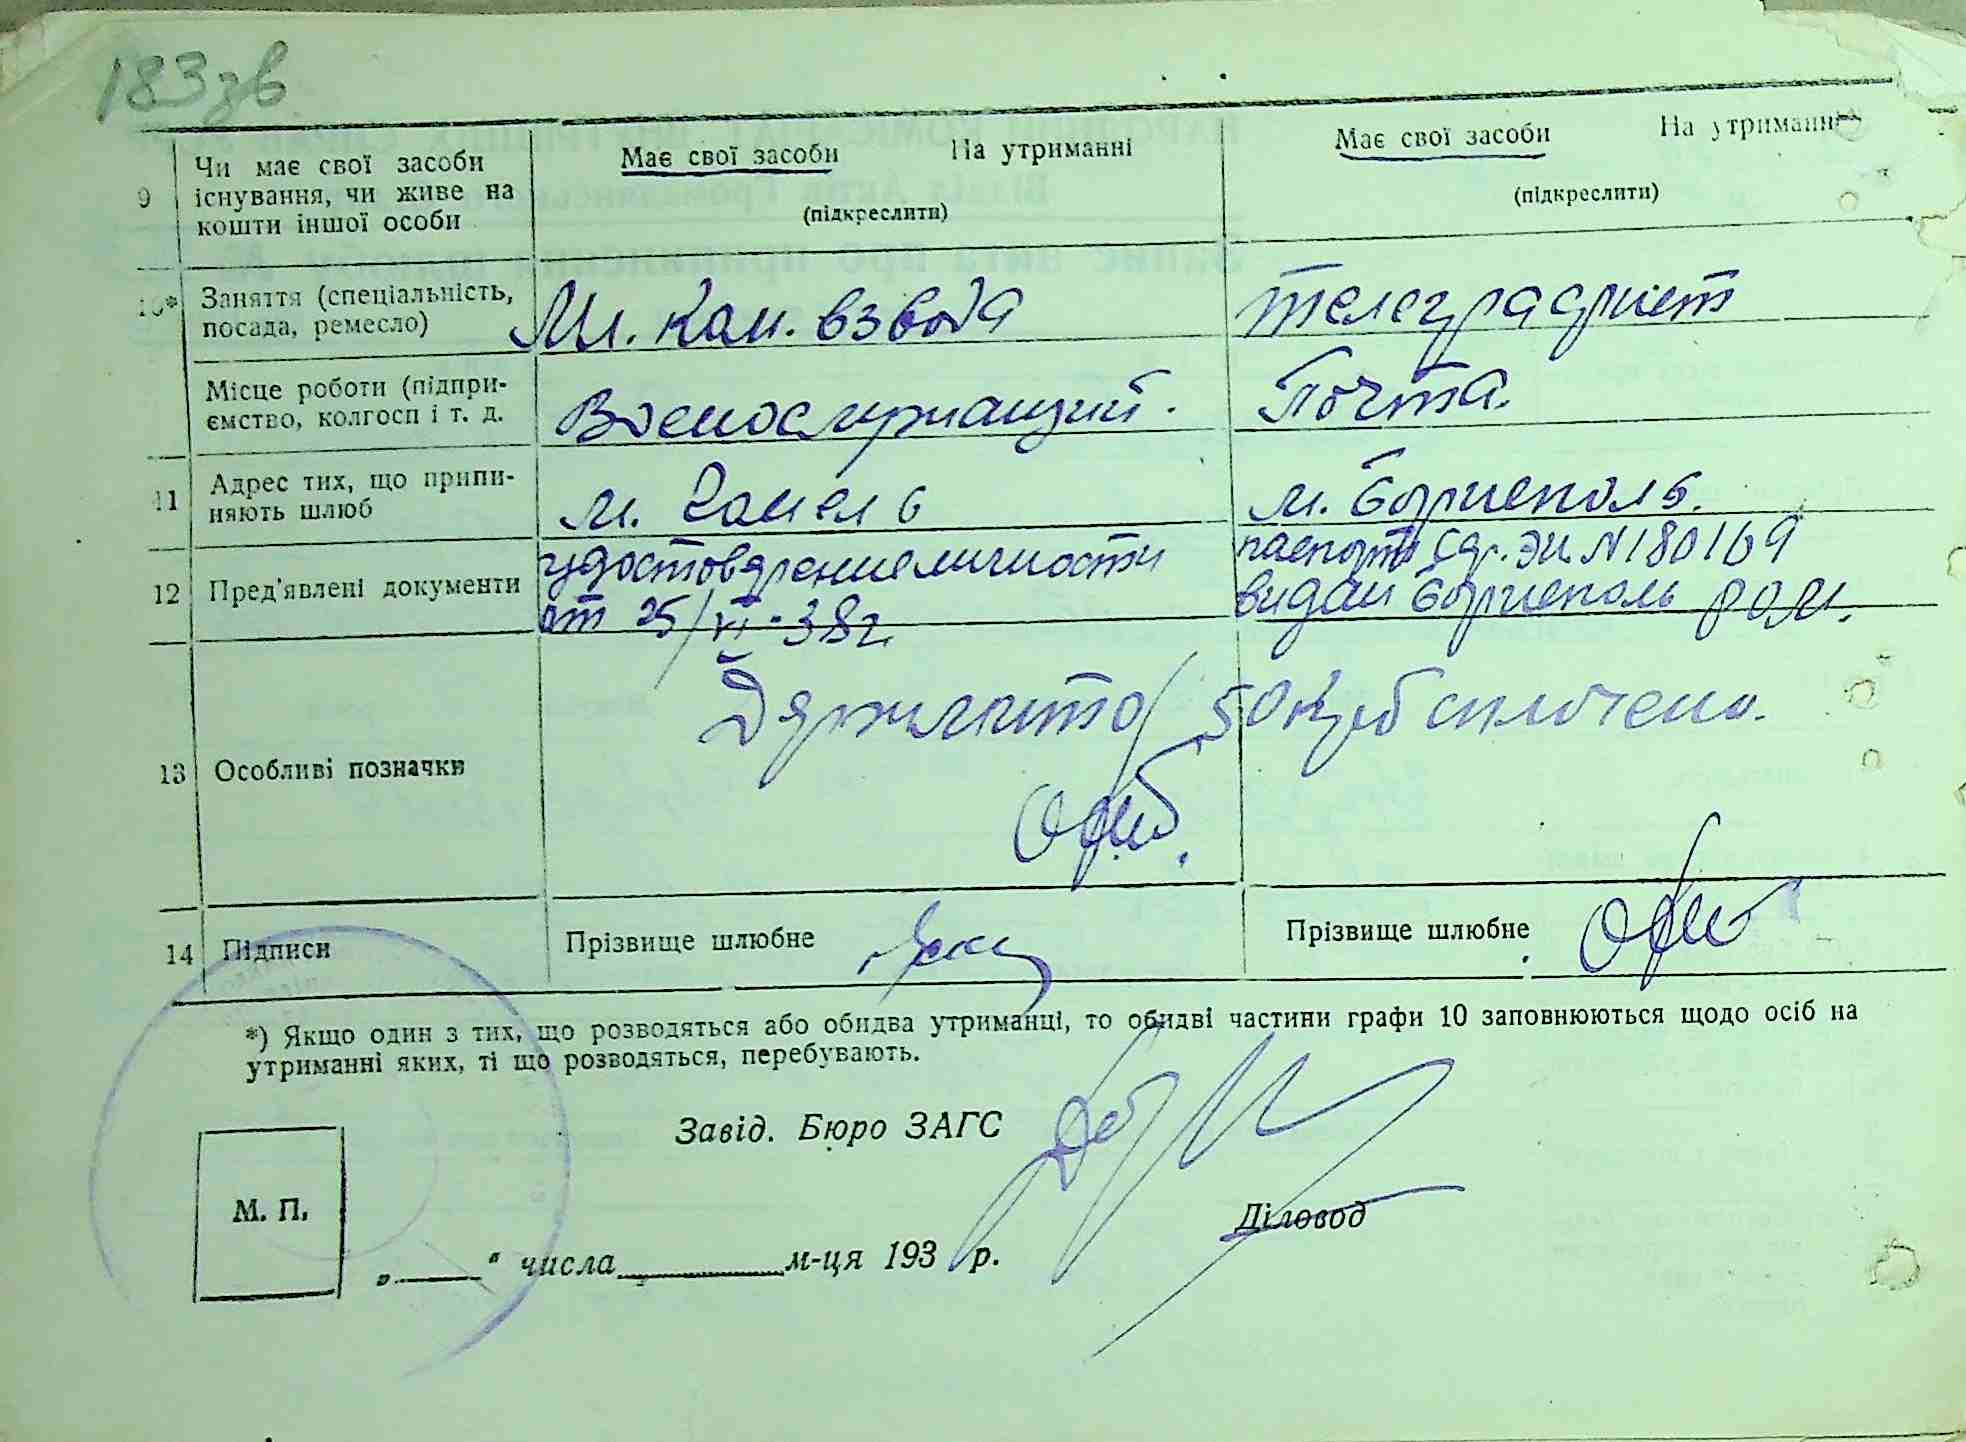 183зв
9 Чи має свої засоби існування, чи живе на кошти іншої особи
Має свої засоби На утриманні
(підкреслити)
Має свої засоби На утриманні
(підкреслити)
10* Заняття (спеціальність, посада, ремесло)
Мл. ком. взвода
телеграфист
Місце роботи (підпри-
ємство, колгосп і т. д.
Военослужащий.
Почта.
11 Адрес тих, що припи-
няють шлюб
м. Гомель
м. Бориспол
12 Пред'явлені документи
удостоврениеличности
от 25/VI-38г.
паспорт ЭИ. №180169
видан Борисполь РОМ.
13 Особливі позначки
Держмито 50 карб сплочено.
14 Підписи
Прізвище шлюбне
Прізвище шлюбне
*) Якщо один з тих, що розводяться або обидва утриманці, то обидві частини графи 10 заповнюються щодо осіб на
утриманні яких, ті що розводяться, перебувають.
Завід. Бюро ЗАГС
М. П.
Діловод
„ “ числа м-ця 193 р.